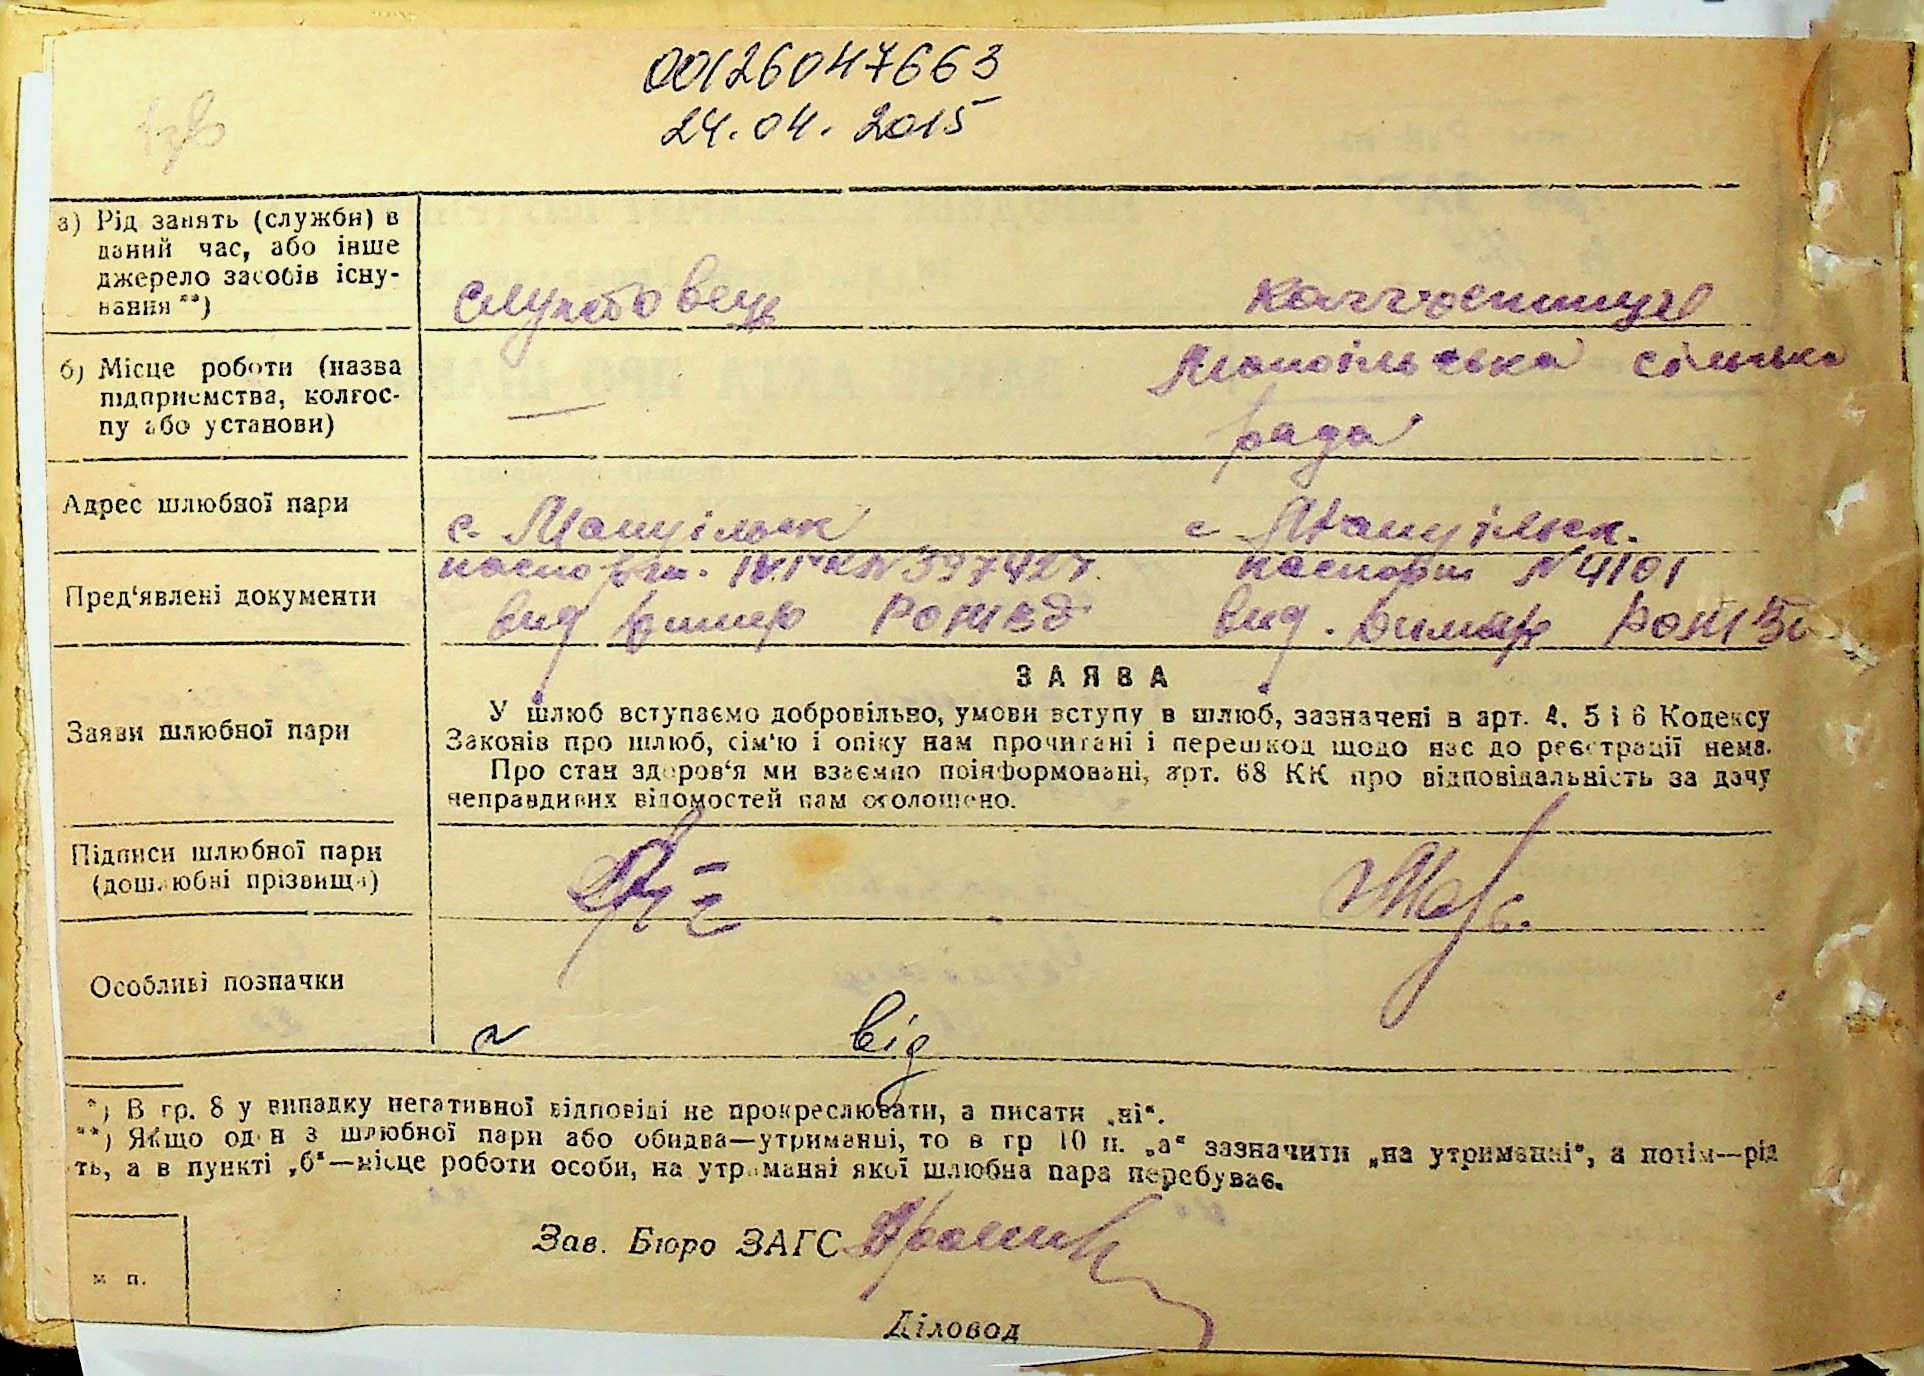 00126047663
24.04.2015
а) Рід занять (служби) в даний час, або інше джерело засобів існування **)
службовець
б) Місце роботи (назва підприємства, колгоспу або установи)
—
сільська
рада
Адрес шлюбної пари
с.
с.
Пред'явлені документи
паспорт. 397427
паспорт N 4101
вид
вид.
Заяви шлюбної пари
ЗАЯВА
У шлюб вступаємо добровільно, умови вступу в шлюб, зазначені в арт. 4. 5 і 6 Кодексу
Законів про шлюб, сім'ю і опіку нам прочитані і перешкод щодо нас до реєстрації нема.
Про стан здоров'я ми взаємно поінформовані, арт. 68 КК про відповідальність за дачу
неправдивих відомостей нам оголошено.
Підписи шлюбної пари
(дошлюбні прізвища)
Особливі позначки
від
*) В гр. 8 у випадку негативної відповіді не прокреслювати, а писати „ні“.
**) Якщо один з шлюбної пари або обидва—утриманці, то в гр 10 п. „а“ зазначити „на утриманні“, а потім—рід
ть, а в пункті „б“—місце роботи особи, на утриманні якої шлюбна пара перебуває.
Зав. Бюро ЗАГС
м п.
Діловод